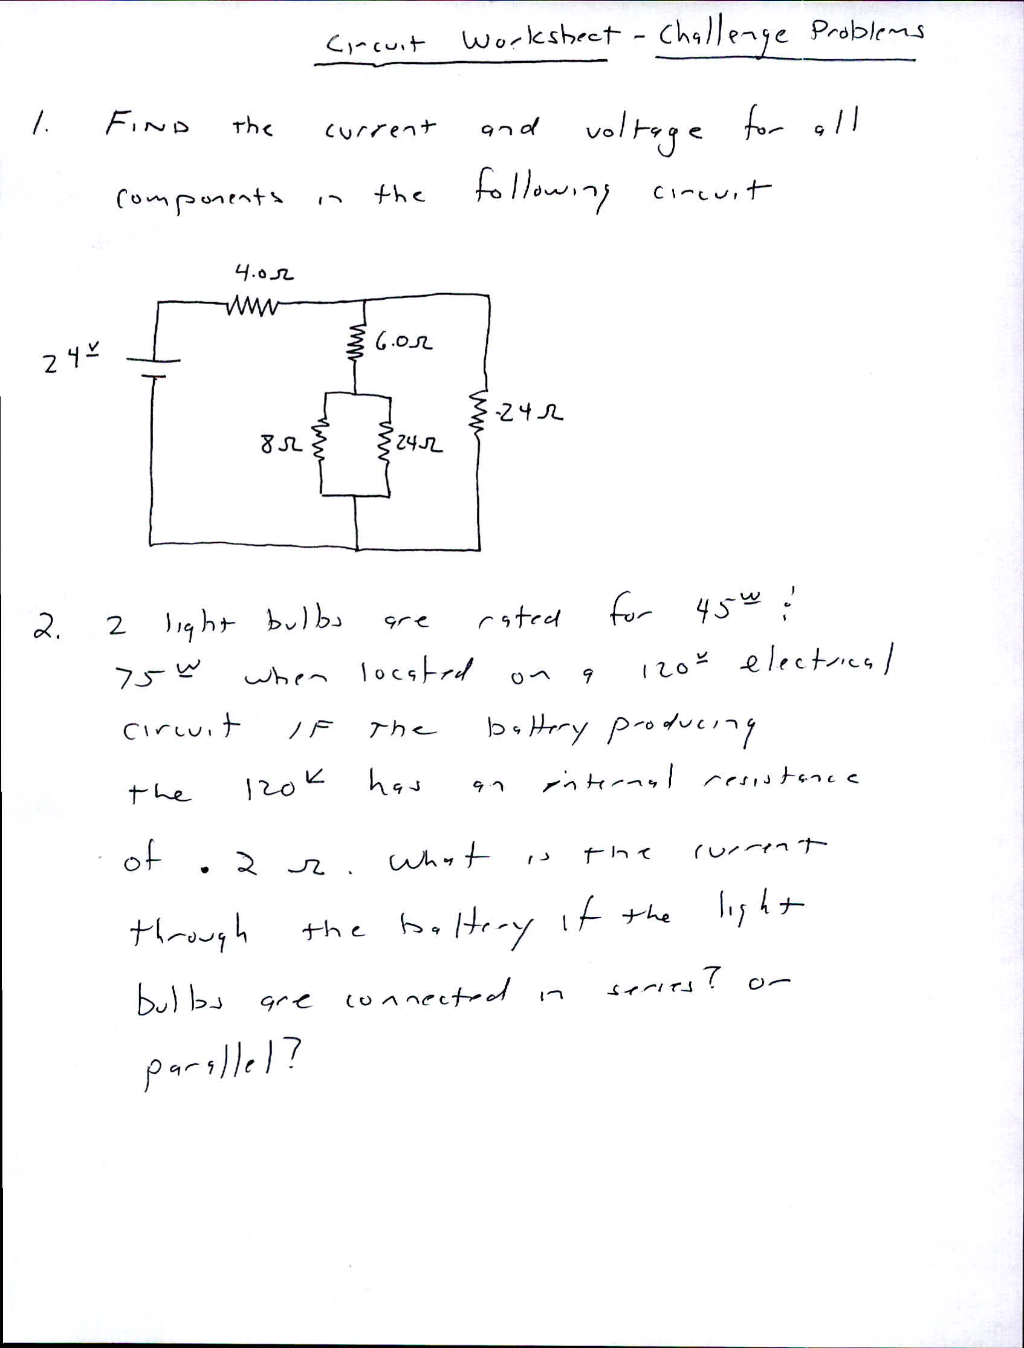 Circuit Worksheet - Challenge Problems
1. FIND the current and voltage for all
components in the following circuit
4.0Ω
24V
6.0Ω
24Ω
8Ω
24Ω
2. 2 light bulbs are rated for 45W &
75W when located on a 120V electrical
circuit IF The battery producing
the 120V has an internal resistance
of .2 Ω. What is the current
through the battery if the light
bulbs are connected in series? or
parallel?